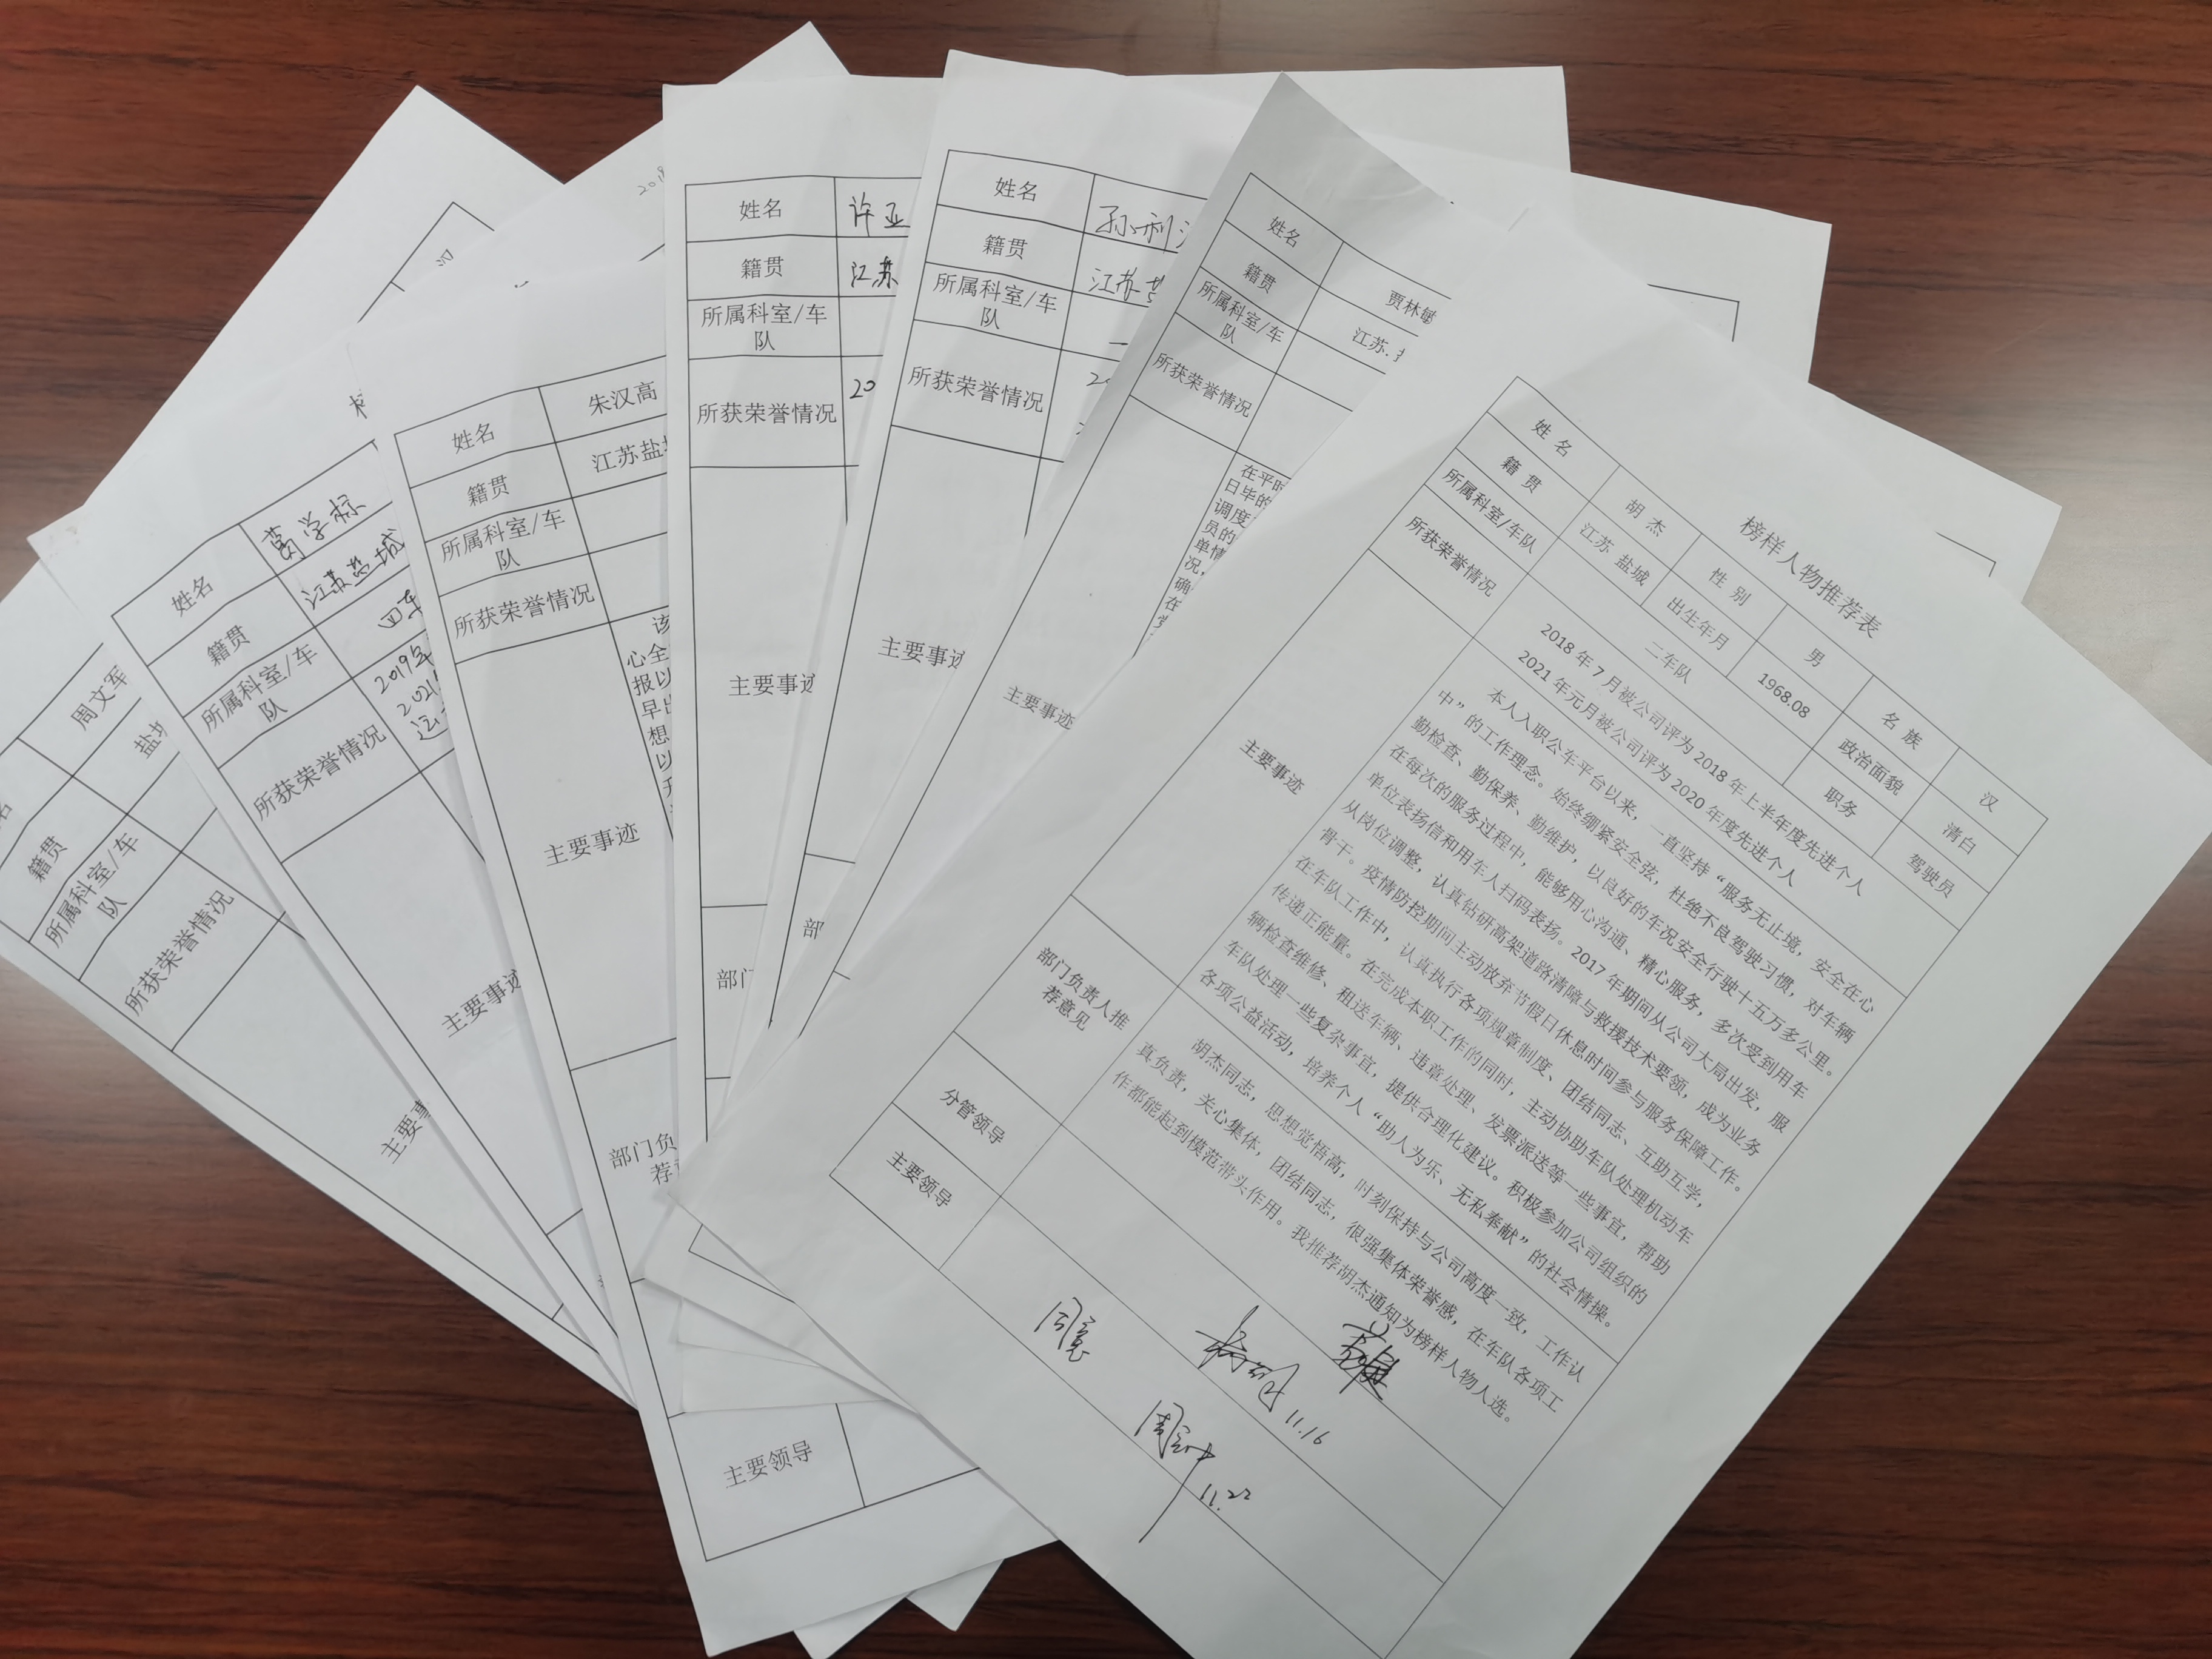 周文军
籍贯
所属科室/车
队
所获荣誉情况
主要事
姓名
葛学标
籍贯
江苏盐城
所属科室/车
队
四车
所获荣誉情况
2019年
2021
主要事迹
姓名
朱汉高
籍贯
江苏盐
所属科室/车
队
所获荣誉情况
主要事迹
该
心全
报以
早出
想
以
部门负
荐
主要领导
姓名
许亚
籍贯
江苏
所属科室/车
队
所获荣誉情况
20
主要事迹
部门
姓名
孙利
籍贯
江苏
所属科室/车
队
所获荣誉情况
主要事迹
部
姓名
贾林敏
籍贯
江苏.
所属科室/车
队
所获荣誉情况
主要事迹
在平时
日毕的
调度
员的
单情
况,
确
在
榜样人物推荐表
姓 名
胡 杰
性 别
男
名 族
汉
籍 贯
江苏 盐城
出生年月
1968.08
政治面貌
清白
所属科室/车队
二车队
职务
驾驶员
所获荣誉情况
2018 年 7 月被公司评为 2018 年上半年度先进个人
2021 年元月被公司评为 2020 年度先进个人
主要事迹
本人入职公车平台以来，一直坚持“服务无止境，安全在心
中”的工作理念。始终绷紧安全弦，杜绝不良驾驶习惯，对车辆
勤检查、勤保养、勤维护，以良好的车况安全行驶十五万多公里。
在每次的服务过程中，能够用心沟通、精心服务，多次受到用车
单位表扬信和用车人扫码表扬。2017 年期间从公司大局出发，服
从岗位调整，认真钻研高架道路清障与救援技术要领，成为业务
骨干。疫情防控期间主动放弃节假日休息时间参与服务保障工作。
在车队工作中，认真执行各项规章制度、团结同志、互助互学，
传递正能量。在完成本职工作的同时，主动协助车队处理机动车
辆检查维修、租送车辆、违章处理、发票派送等一些事宜，帮助
车队处理一些复杂事宜，提供合理化建议。积极参加公司组织的
各项公益活动，培养个人“助人为乐、无私奉献”的社会情操。
部门负责人推
荐意见
胡杰同志，思想觉悟高，时刻保持与公司高度一致，工作认
真负责，关心集体，团结同志，很强集体荣誉感，在车队各项工
作都能起到模范带头作用。我推荐胡杰通知为榜样人物人选。
分管领导
11.16
主要领导
11.22